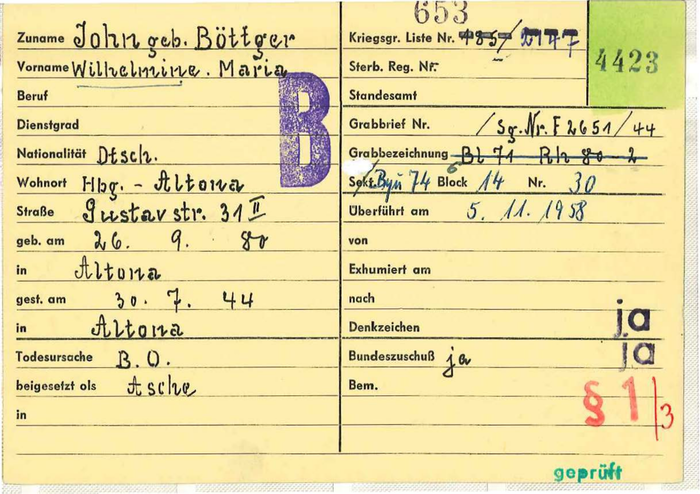 653
4423
Zuname John geb. Böttger
Vorname Wilhelmine. Maria
Beruf
Dienstgrad
Nationalität Dtsch.
Wohnort Hbg. - Altona
Straße Gustavstr. 31 II
geb. am 26. 9. 80
in Altona
gest. am 30. 7. 44
in Altona
Todesursache B.O.
beigesetzt als Asche
in
B
Kriegsgr. Liste Nr. 485/2147
Sterb. Reg. Nr.
Standesamt
Grabbrief Nr. /Sg.Nr.F 2651/44
Grabbezeichnung Bl 71 Rh 80 2
Sekt. 74 Block 14 Nr. 30
Überführt am 5. 11. 1958
von
Exhumiert am
nach
Denkzeichen ja
Bundeszuschuß ja ja
Bem.
§ 1/3
geprüft